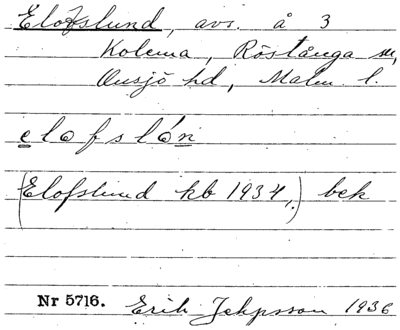 Elofslund, avs. å 3
Kolema, Röstånga sn,
Onsjö hd, Malm. l.
elofslón
(Elofslund kb 1934,) bek
Nr 5716. Erik Jeppsson 1936